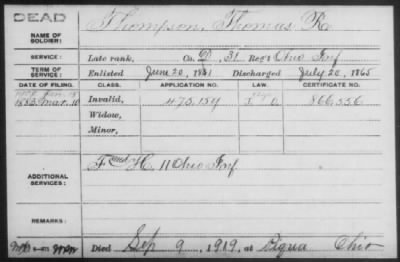 DEAD
NAME OF SOLDIER: Thompson, Thomas R.
SERVICE: Late rank, Co. D, 31 Reg't Ohio Inf
TERM OF SERVICE: Enlisted June 20, 1861 Discharged July 20, 1865
DATE OF FILING. CLASS. APPLICATION NO. LAW. CERTIFICATE NO.
1883. Mar. 10 Invalid, 475.154 866,556
Widow,
Minor,
ADDITIONAL SERVICES: F and H 11 Ohio Inf
REMARKS:
Died Sep 9, 1919, at Piqua Ohio